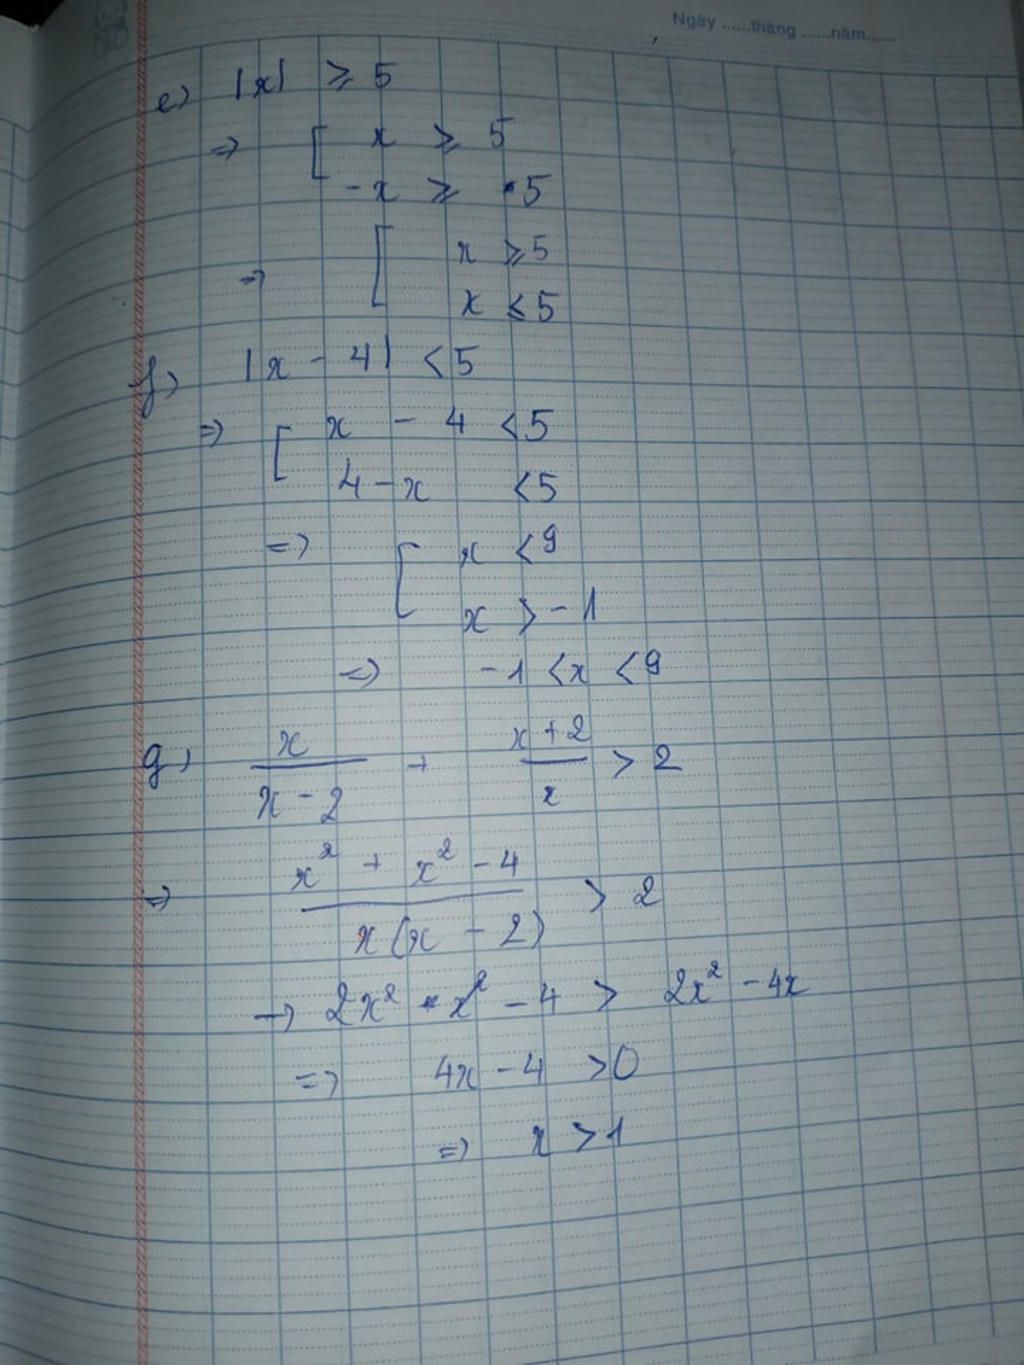 Ngày ......tháng ......năm......
e) |x| ≥ 5
=> [ x ≥ 5
-x ≥ 5
=> [ x ≥ 5
x ≤ 5
f) |x - 4| < 5
=> [ x - 4 < 5
4 - x < 5
=> [ x < 9
x > -1
=> -1 < x < 9
g) x/(x - 2) + (x + 2)/x > 2
=> (x² + x² - 4)/(x(x - 2)) > 2
=> 2x² - 4 > 2x² - 4x
=> 4x - 4 > 0
=> x > 1